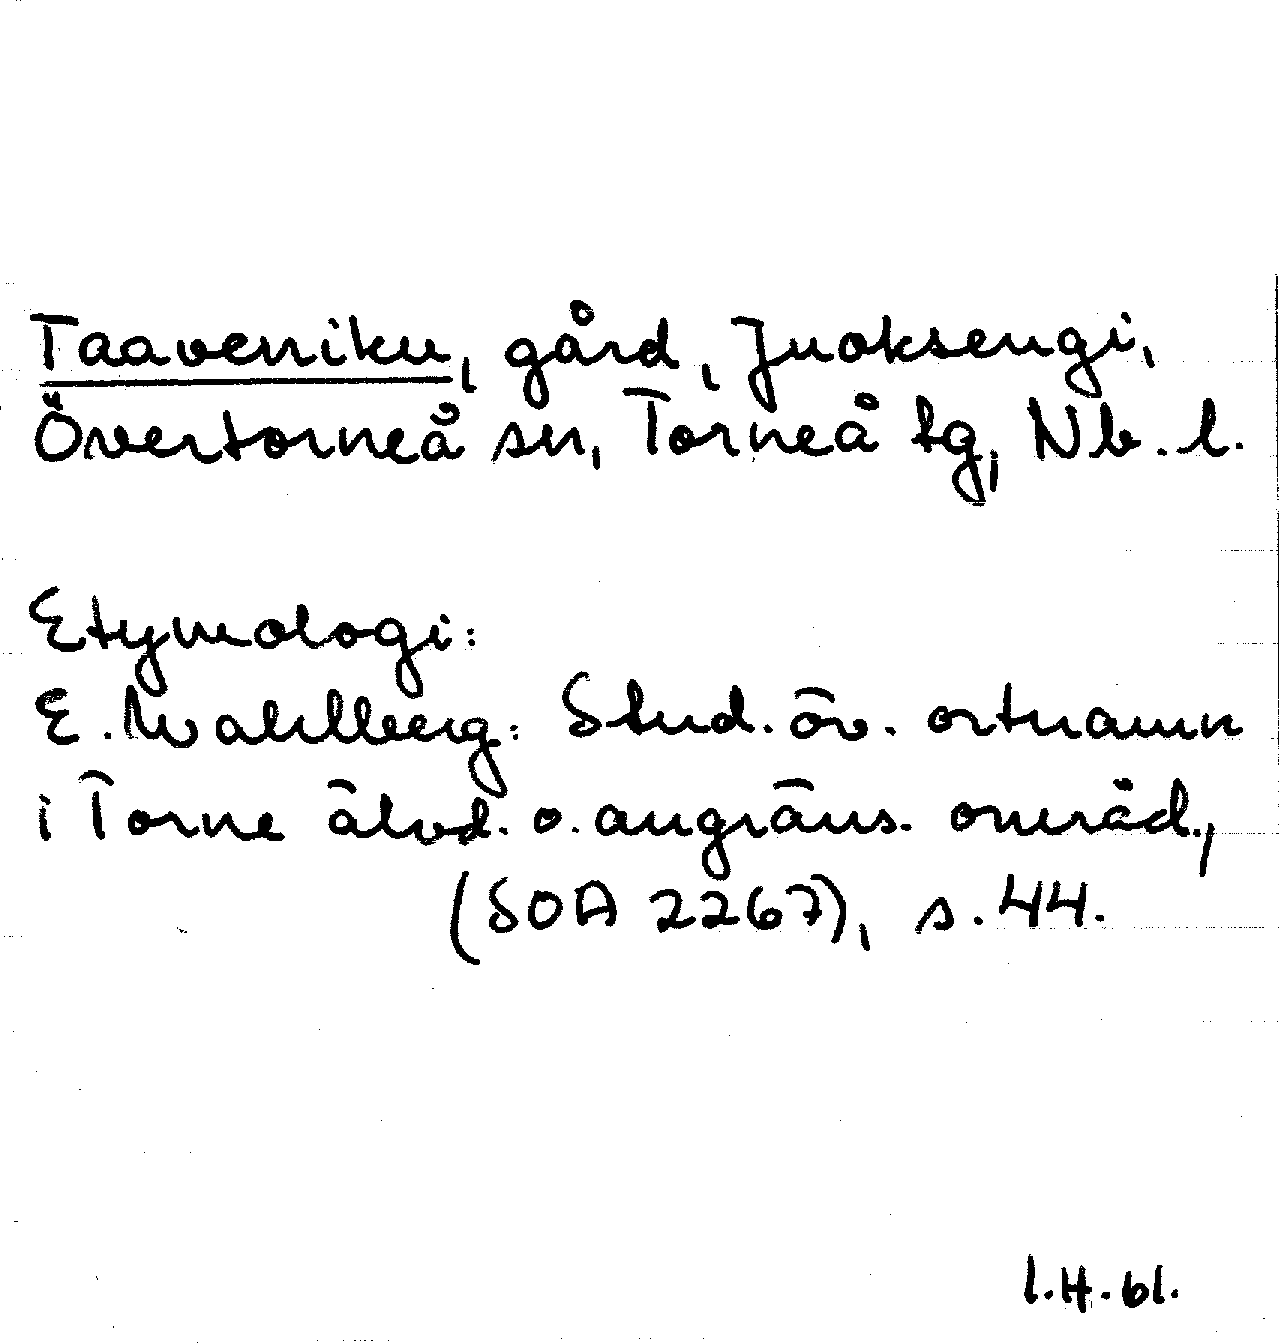 Taaveniku, gård, Juoksengi,
Övertorneå sn, Torneå tg, Nb. l.
Etymologi:
E. Wahlberg: Stud. öv. ortnamn
i Torne älvd. o. angräns. områd.,
(SOA 2267), s. 44.
I.H. 61.